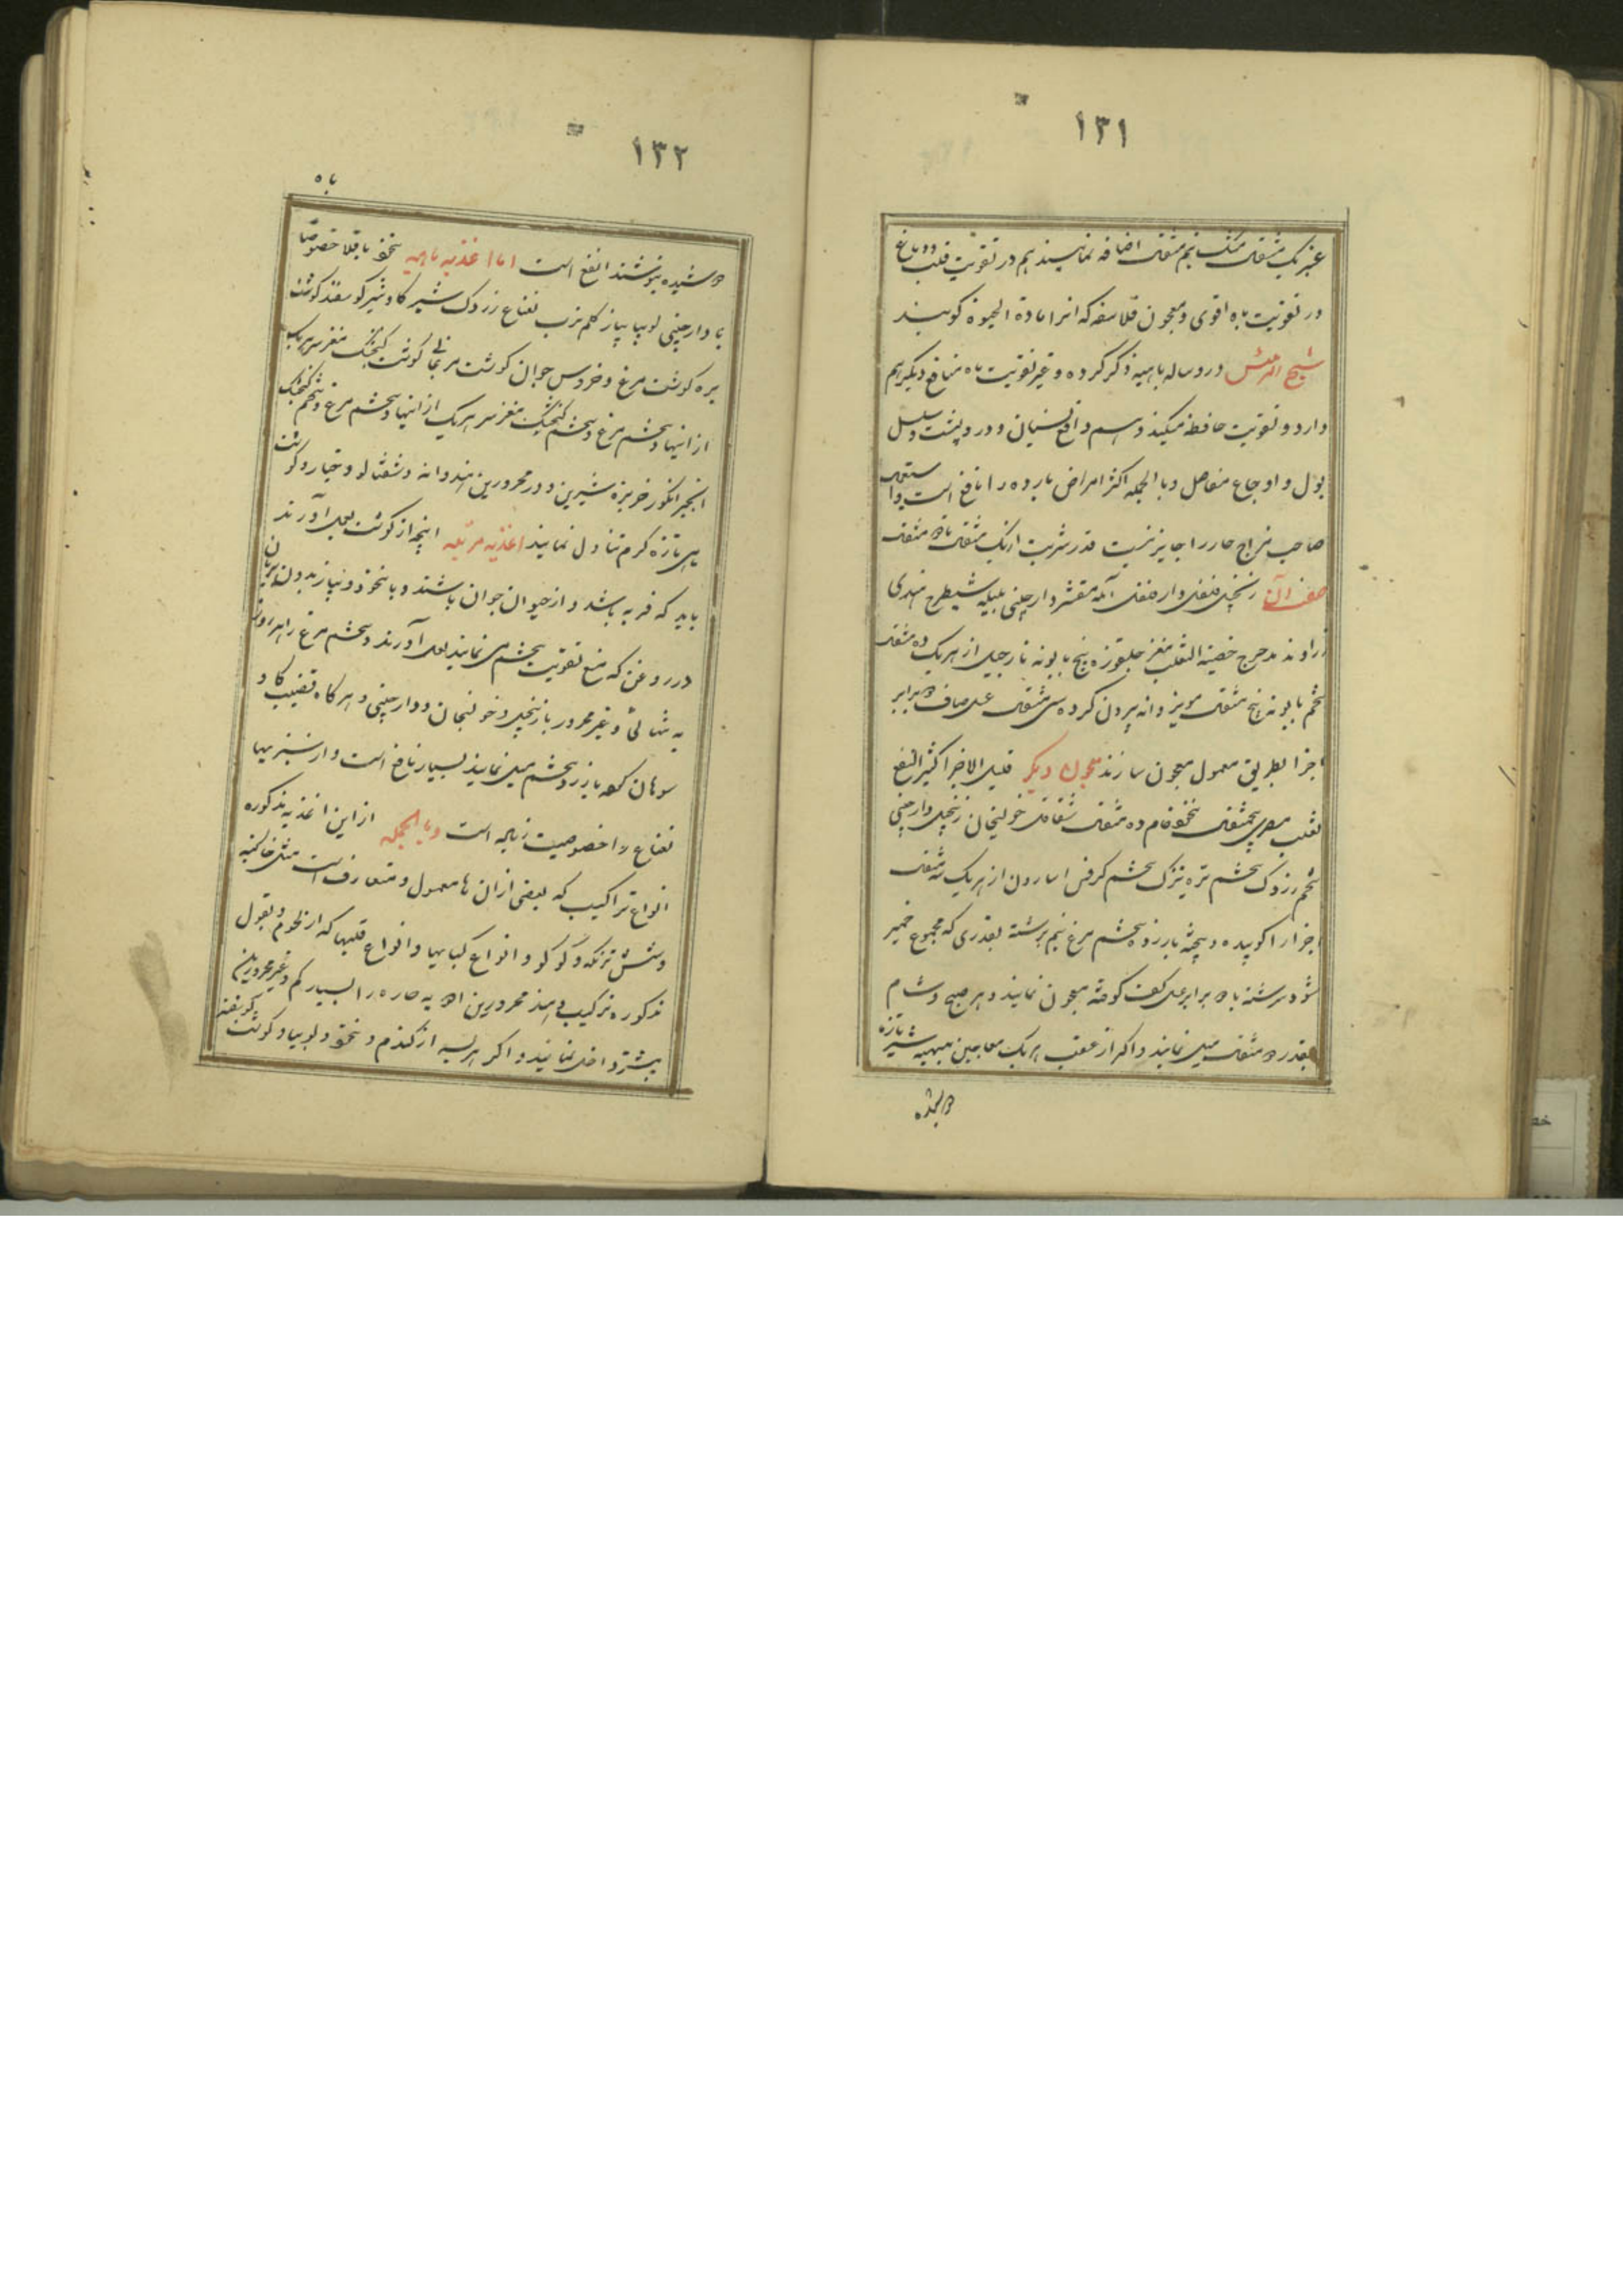 ١٣١
عنبر یک مثقال مشک نیم مثقال اضافه نمایند هم در تقویت قلب و دماغ
و در تقویت باه اقوی و معجون فلاسفه که انرا مادة الحیوة گویند
شیخ الرئیس در رساله باهیه ذکر کرده و غیر تقویت باه منافع دیگر هم
دارد و تقویت حافظه میکند و هم دافع نسیان و درد پشت و سلسل
بول و اوجاع مفاصل و بالجمله اکثر امراض بارده را نافع است و استعمال
صاحب مزاج حار را جایز نیست قدر شربت از یک مثقال تا دو مثقال
صفت آن زنجبیل فلفل دارفلفل آمله مقشر دارچینی بلیله شیطرج هندی
زراوند مدحرج خصیة الثعلب مغز جلغوزه بیخ بابونه نارجیل از هریک ده مثقال
تخم بابونه پنج مثقال مویز دانه بیرون کرده سی مثقال عسل صاف دو برابر
اجزا بطریق معمول معجون سازند معجون دیگر قلیل الاجزا کثیر النفع
ثعلب مصری پنجمثقال نخود خام ده مثقال شقاقل خولنجان زنجبیل دارچینی
تخم زردک تخم تره تیزک تخم کرفس اسارون از هریک سه مثقال
اجزا را کوبیده و پخته با زرده تخم مرغ نیم برشته بقدری که مجموع خمیر
شود سرشته با دو برابر عسل کف گرفته معجون نمایند و هر صبح و شام
بقدر دو مثقال میل نمایند و اگر از عقب هریک معاجین مبهیه شیر تازه
دوشیده
١٣٢
باه
دوشیده بنوشند انفع است اما اغذیه باهیه نخود باقلا خصوصا
با دارچینی لوبیا پیاز کلم ترب نعناع زردک شیر گاو شیر گوسفند گوشت
بره گوشت مرغ و خروس جوان گوشت مرغابی گوشت گنجشک مغز سر هریک
از اینها و تخم مرغ و تخم گنجشک مغز سر هریک از اینها و تخم مرغ و تخم گنجشک
انجیر انگور خربزه شیرین و در محرورین هندوانه و شفتالو و خیار و گوشت
ماهی تازه گرم تناول نمایند اغذیه مرکبه انچه از گوشت بعمل آورند
باید که فربه باشد و از حیوان جوان باشند و با نخود و پیاز بدون بریان
در روغن که منع تقویت تخم می نمایند بعمل آورند و تخم مرغ را هر روز
به تنهائی و غیر محرور با زنجبیل و خولنجان و دارچینی و هرگاه قضیب گاو
سوهان کرده با زرده تخم میل نمایند بسیار نافع است و از سبزیها
نعناع را خصوصیت زیاده است و بالجمله از این اغذیه مذکوره
انواع تراکیب که بعضی از انها معمول و متعارف است مثل خاگینه
و شش تزنکه و کوکو و انواع کبابها و انواع قلیها که از لحوم و بقول
مذکوره ترکیب دهند محرورین ادویه حاره را بسیار کم و غیر محرورین
بیشتر داخل نمایند و اگر هریسه از گندم و نخود و لوبیا و گوشت گوسفند